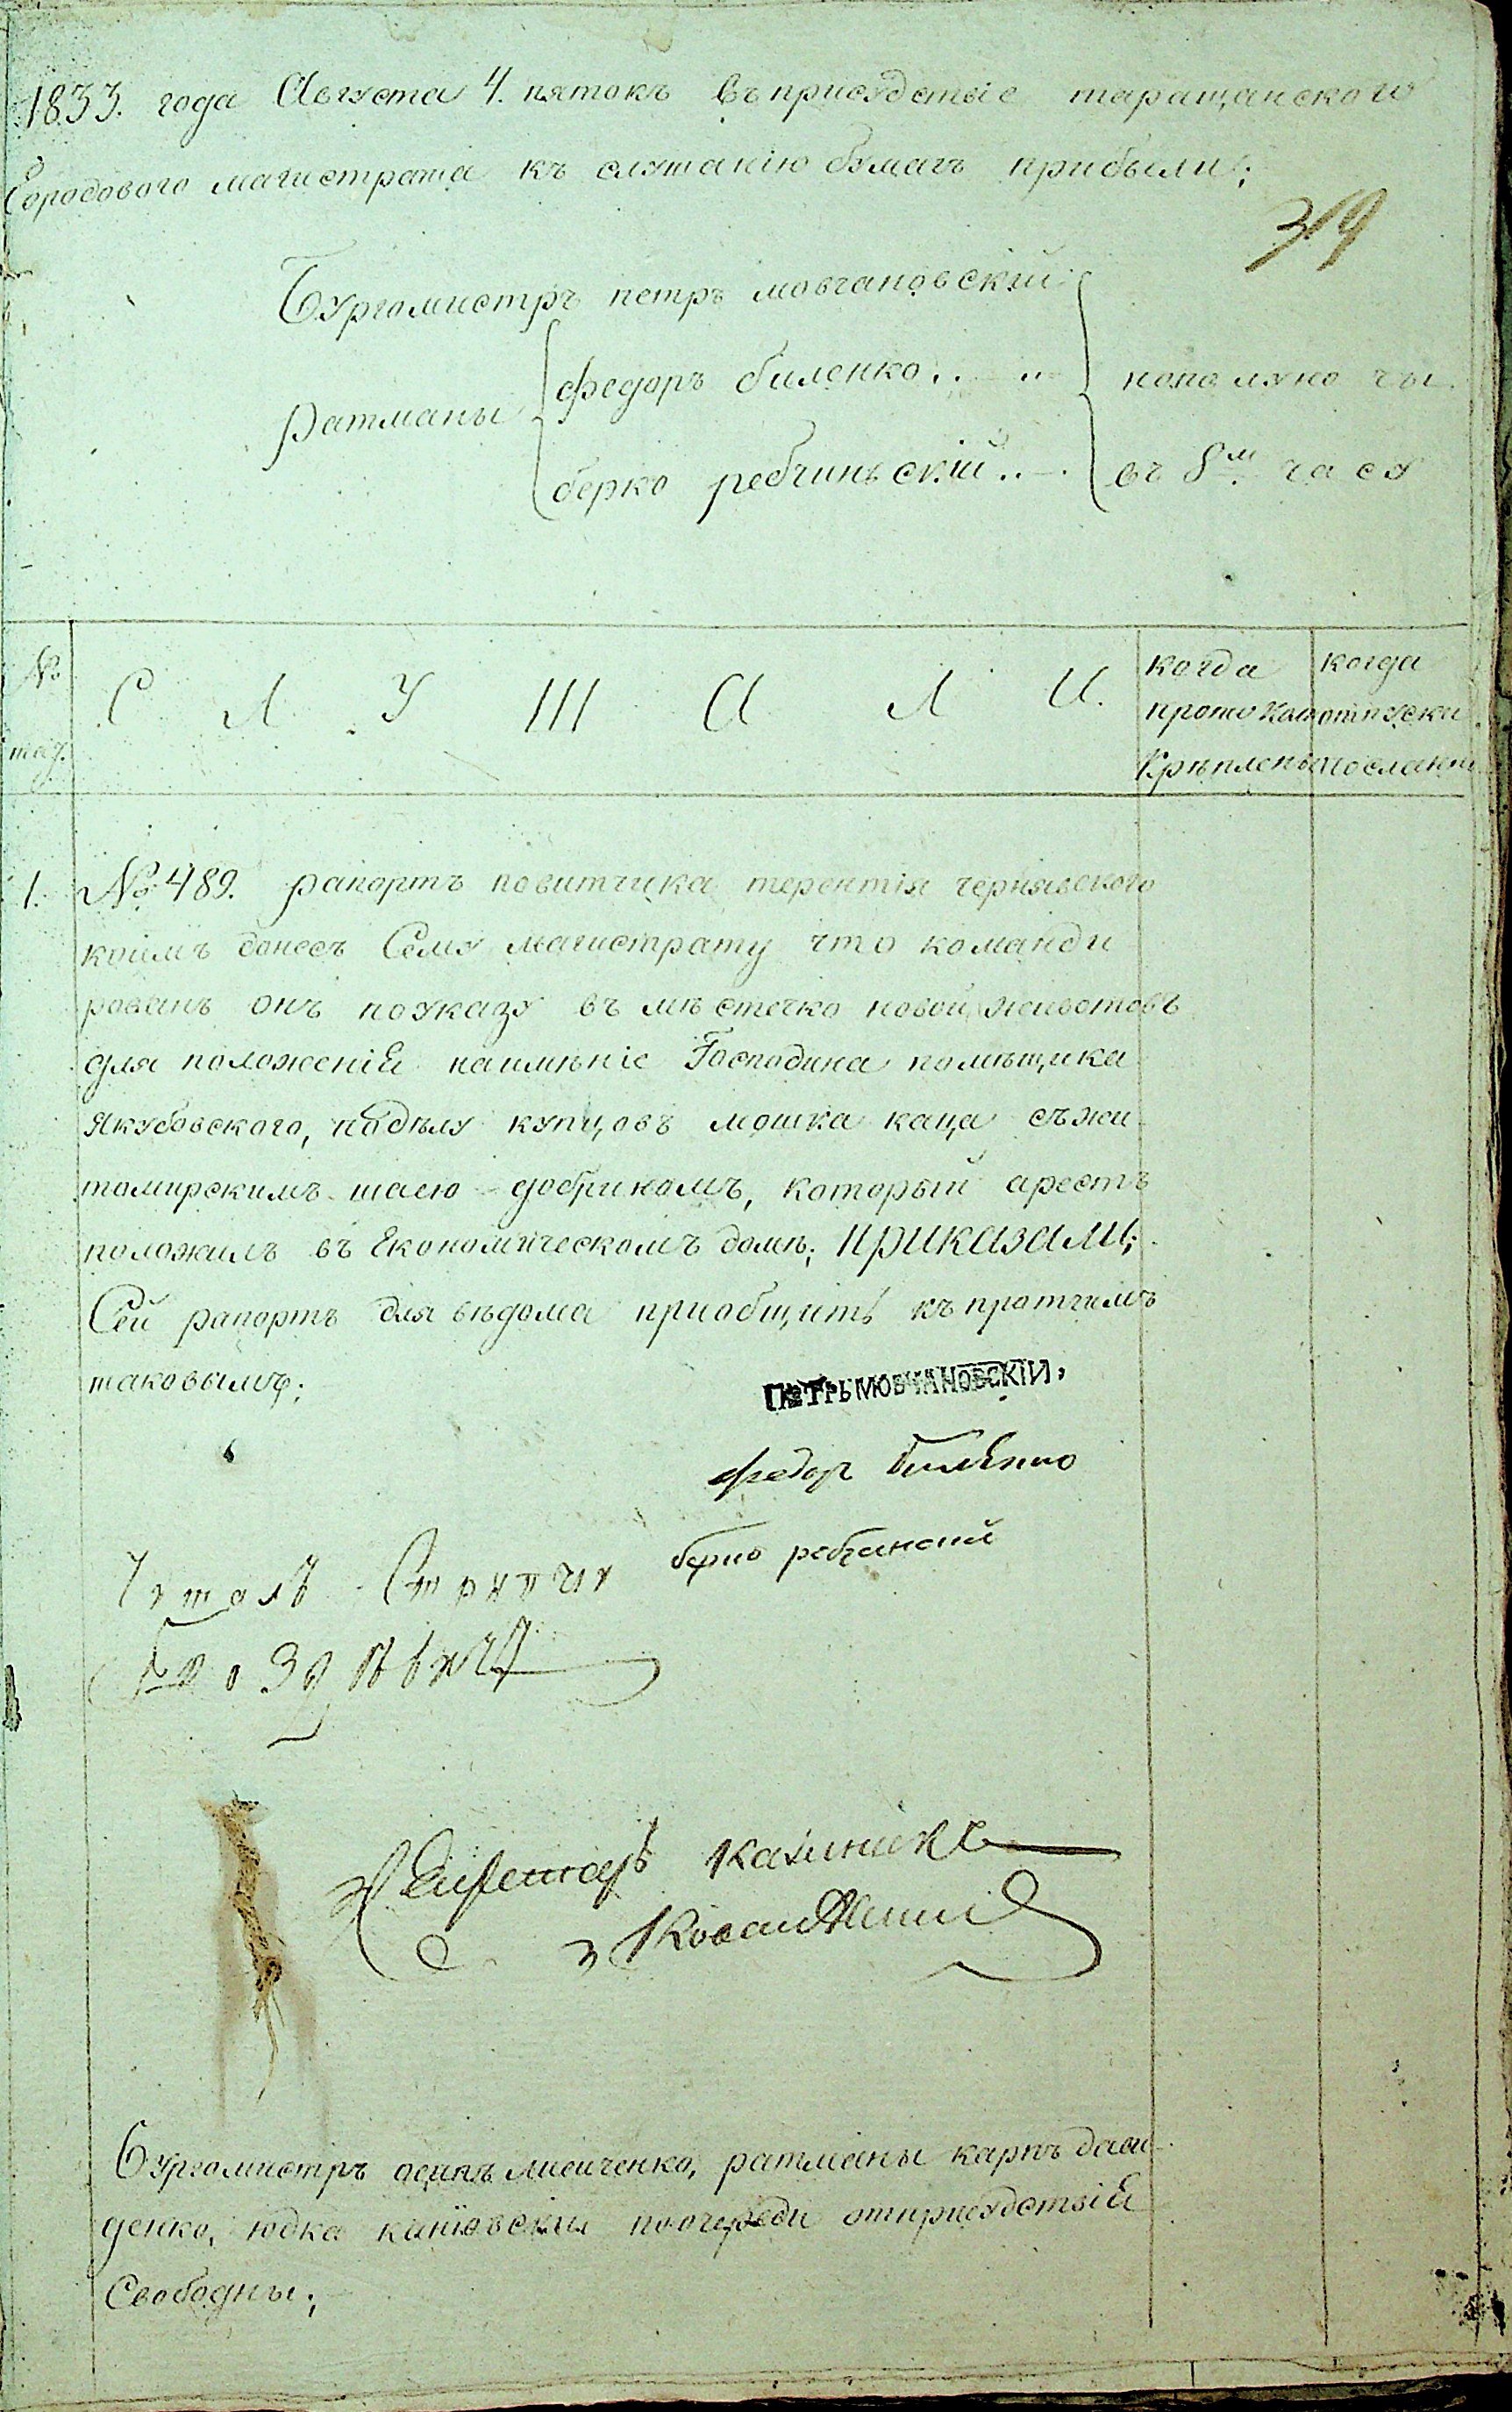 1833. года Августа 4. пятокъ въ присудствіе таращанского
Городового магистрата къ слушанію бумагъ прибыли;
319
Бургомистръ петръ мовчановскій
федоръ биленко
ратманы
берко ребчиньскій
пополуночы
въ 8м часу
№
С Л У Ш А Л И.
когда
протокол
крѣплены
когда
отпуски
посланы
1. № 489. рапортъ повитчика терентія чернявского
коимъ донесъ Сему магистрату что команди
рованъ онъ по указу въ мѣстечко новой животовъ
для положеніЯ на имѣніе Господина помѣщика
Якубовского, по дѣлу купцовъ мошка каца съ жи
томирскимъ шаею добрикомъ, который арестъ
положилъ въ Економическомъ домѣ; приказали;
Сей рапортъ для вѣдома приобщить къ протчимъ
таковымъ;
ПЕТРЪ МОВЧАНОВСКІЙ,
федор Биленко
берко ребчинский
Читалъ Стряпчи
Секретарь
Бургомистръ осипъ лисиченко, ратманы карпъ дави
денко, юдка каниовскій по очереди от присудствіЯ
Свободны;